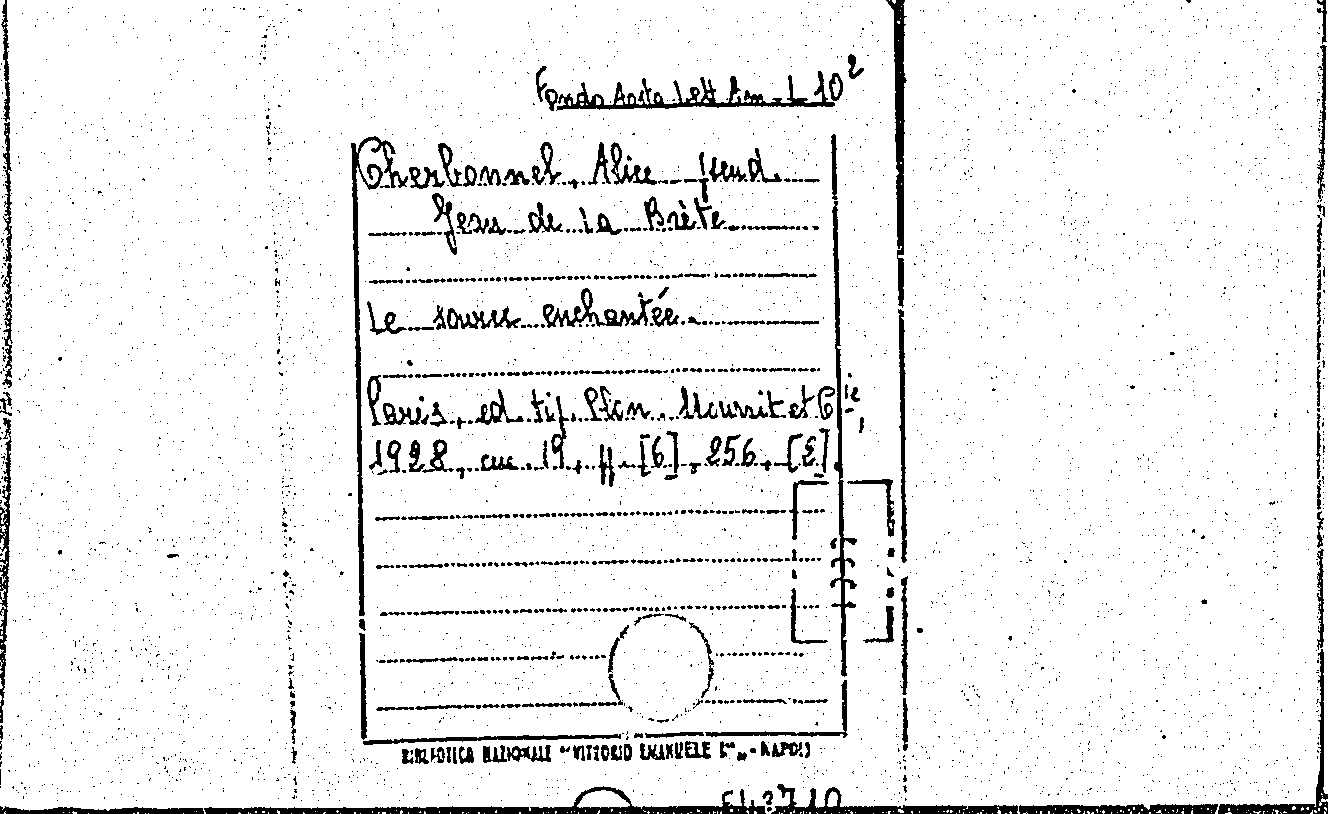 Fondo Aosta Lett Am. L 10²
Cherbonnel, Alice pseud.
Jean de La Brète.
La source enchantée.
Paris, ed. tip. Plon. Nourrit et Cie,
1928, cm. 19, pp. [6], 256, [2].
BIBLIOTECA NAZIONALE "VITTORIO EMANUELE III" - NAPOLI